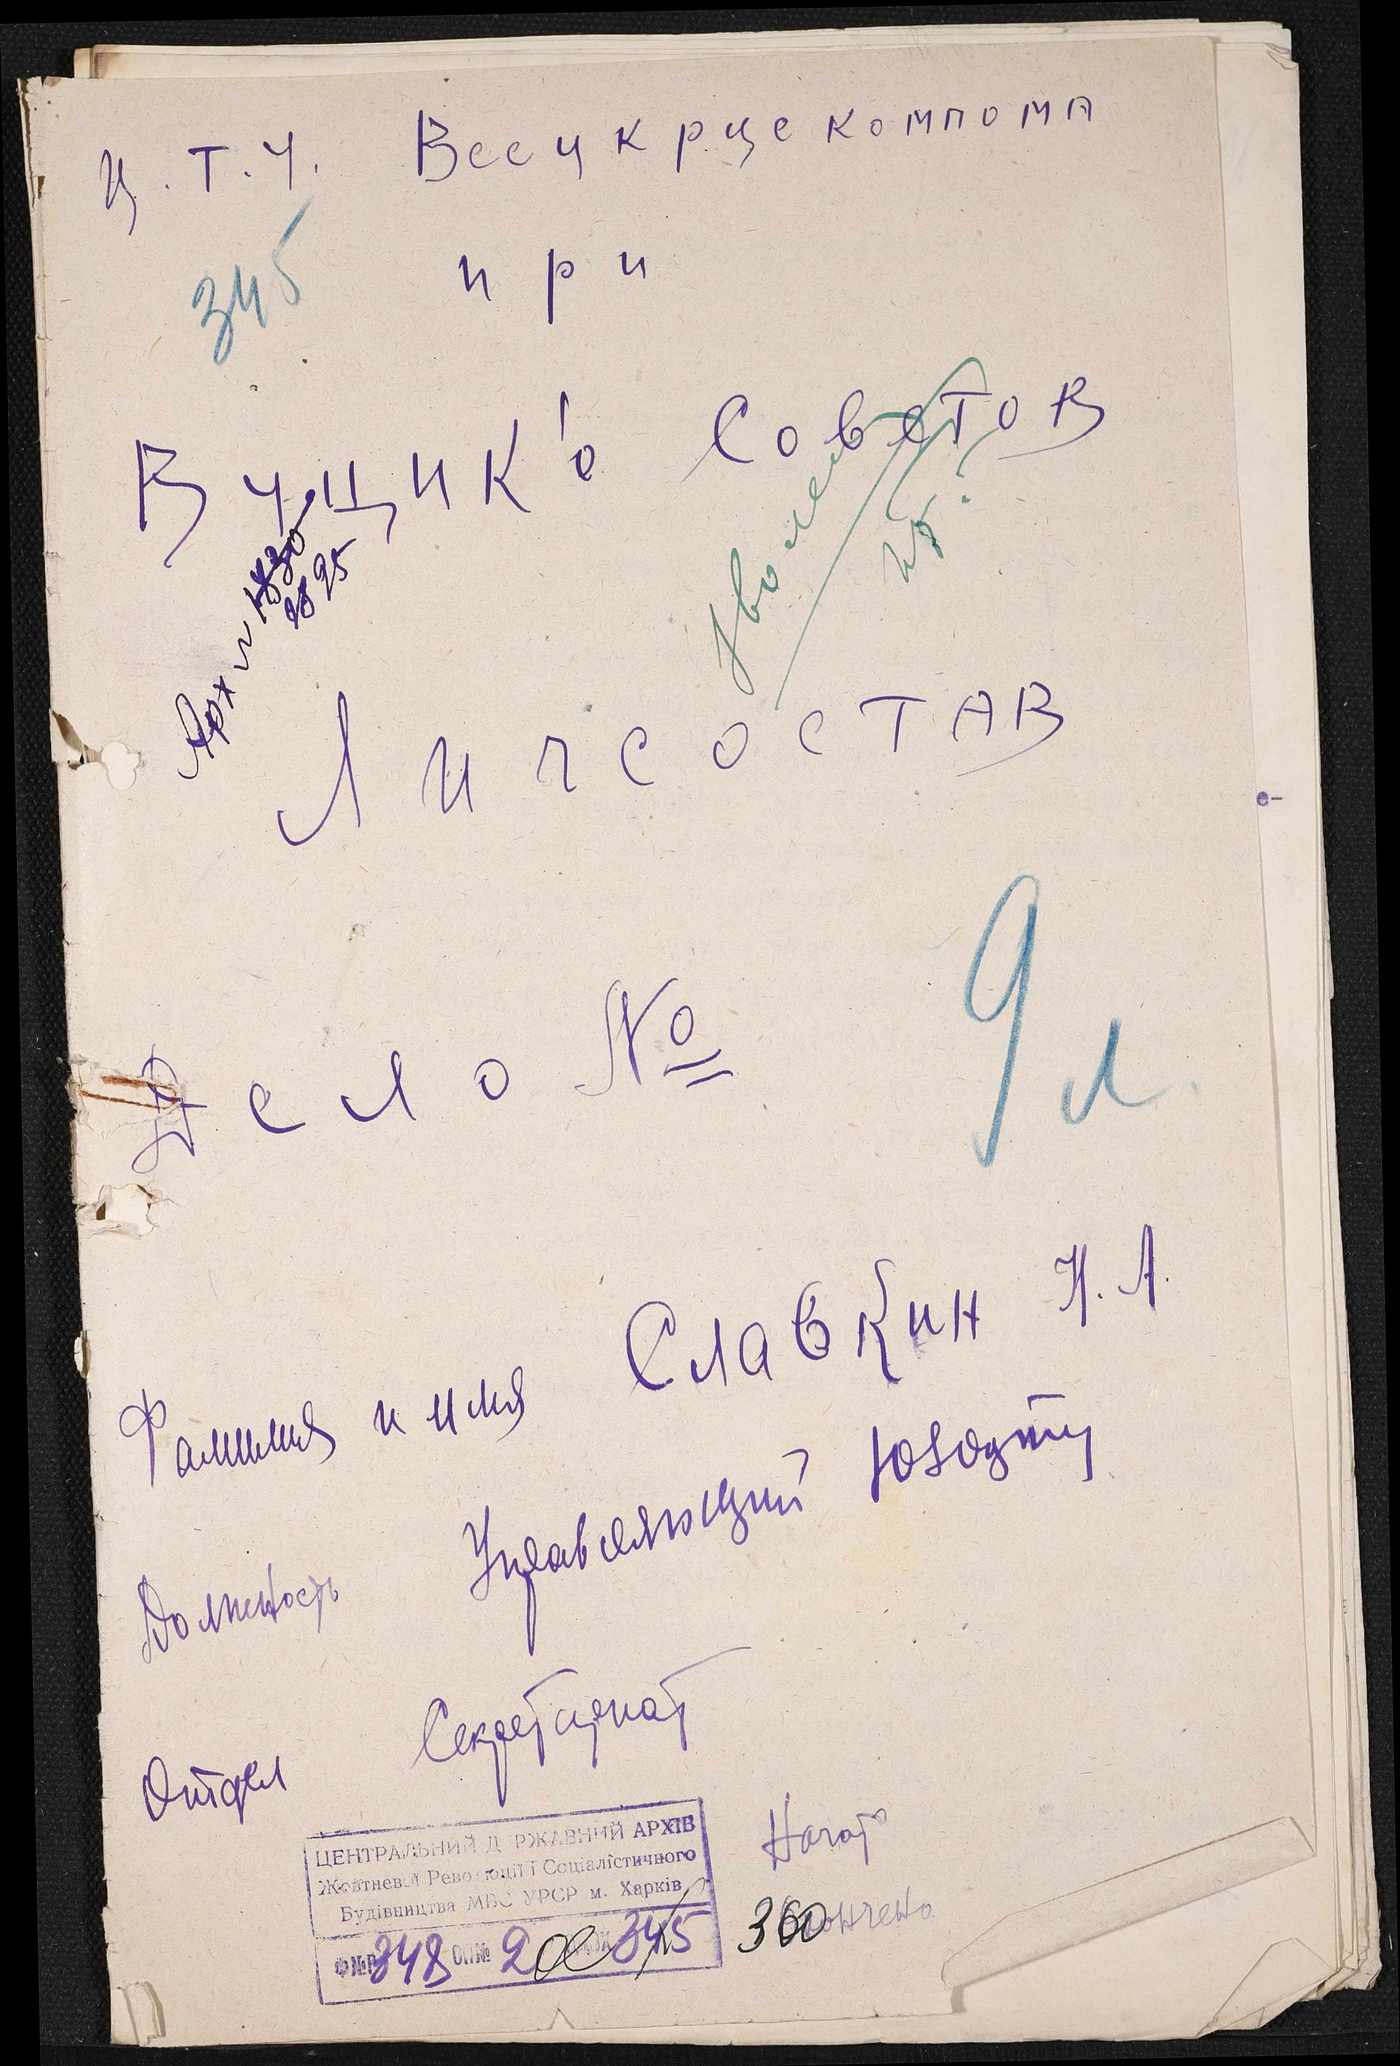 Ц.Т.У. Всеукрцекомпома
345
при
ВУЦИК'о Советов
Арх
Личсостав
Дело №
9 л.
Фамилия и имя Славкин И. А.
Должность Управляющий
Отдел Секретариат
ЦЕНТРАЛЬНИЙ ДЕРЖАВНИЙ АРХІВ
Жовтневої Революції і Соціалістичного
Будівництва МВС УРСР м. Харків
Ф № Р 348 ОП № 2 345
Начато
360 Окончено